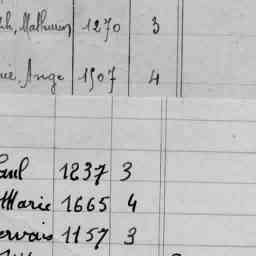 ph, Mathurin 1270 3
rie, Ange 1507 4
Paul 1237 3
Marie 1665 4
ervais 1157 3